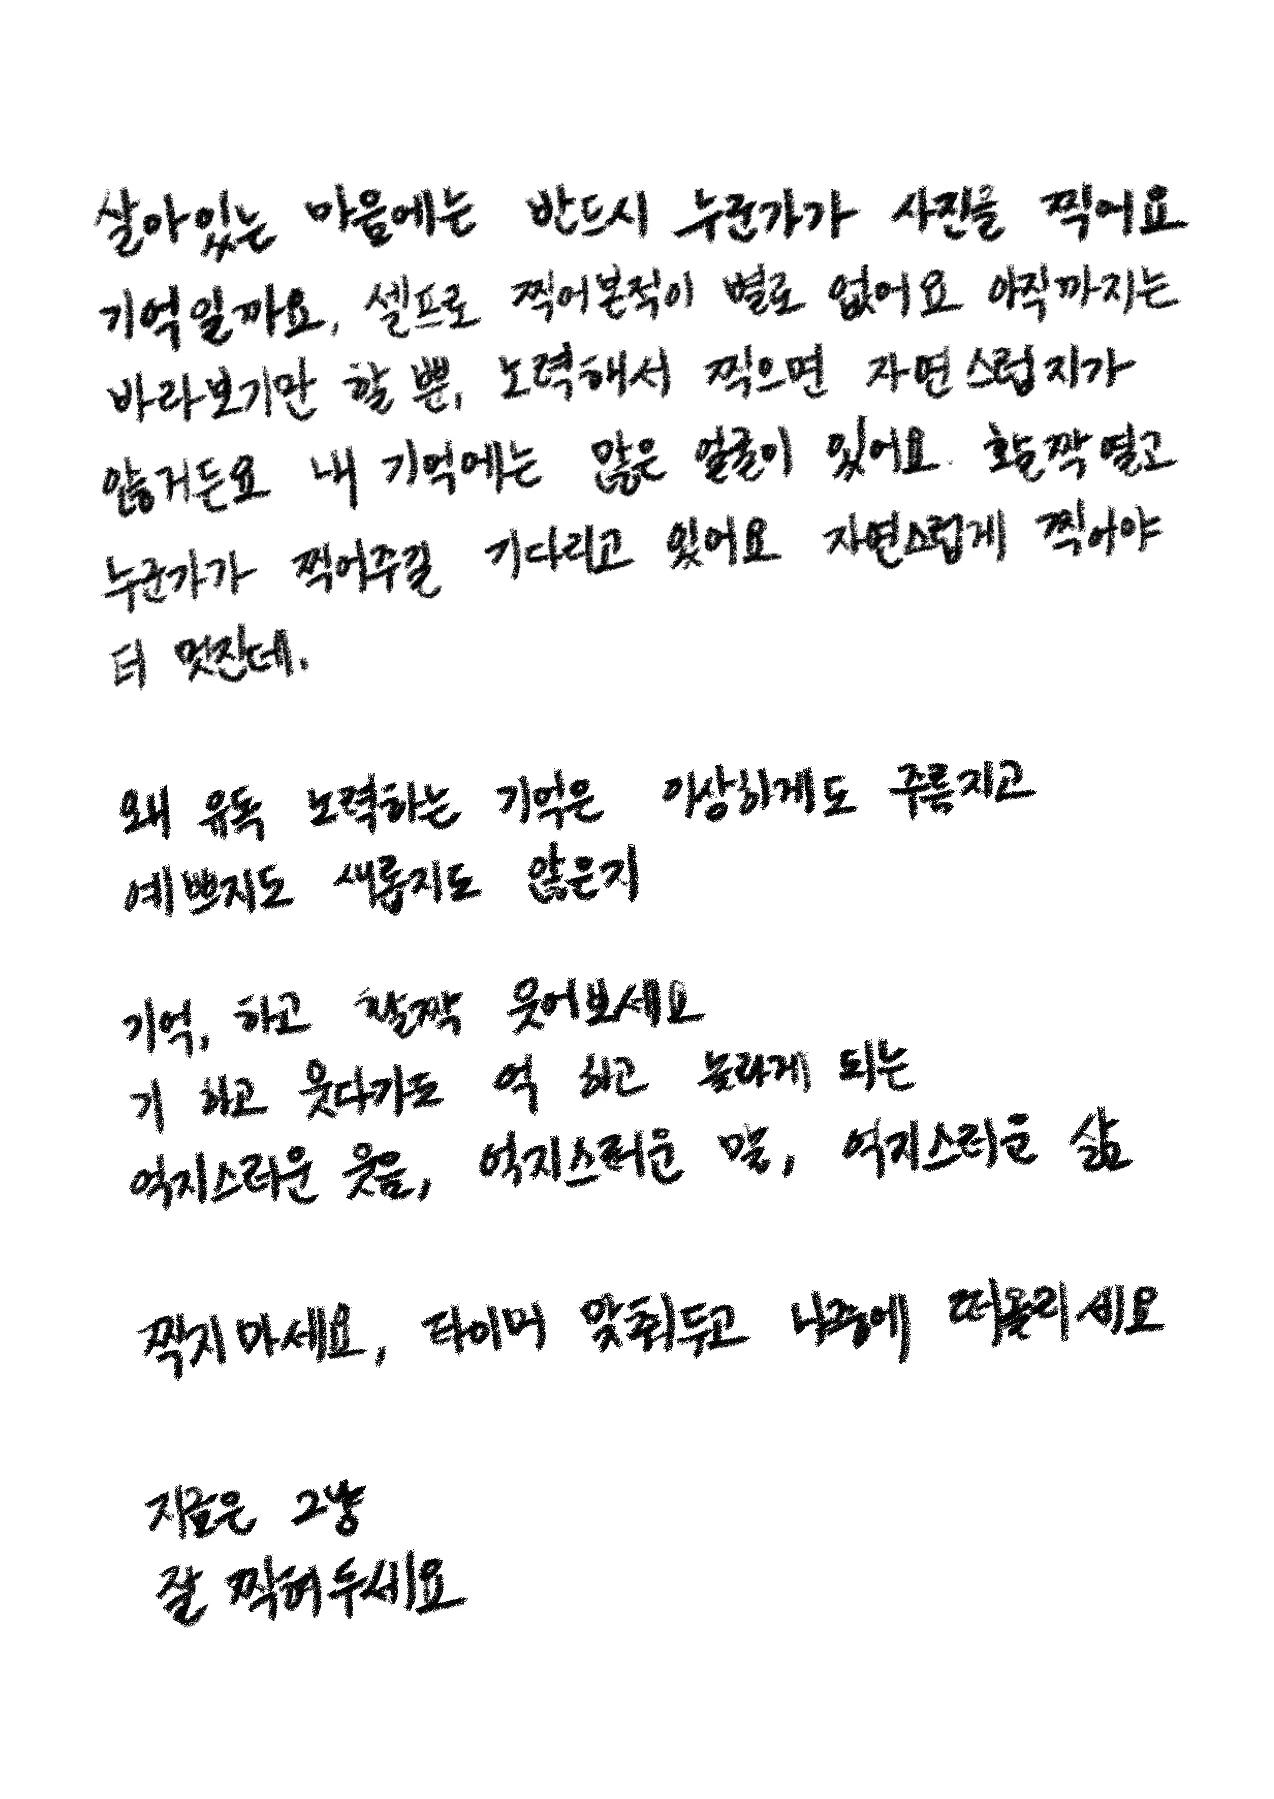 살아있는 마음에는 반드시 누군가가 사진을 찍어요
기억일까요, 셀프로 찍어본적이 별로 없어요 아직까지는
바라보기만 할 뿐, 노력해서 찍으면 자연스럽지가
않거든요 내 기억에는 많은 얼굴이 있어요. 활짝 열고
누군가가 찍어주길 기다리고 있어요 자연스럽게 찍어야
더 멋진데.
왜 유독 노력하는 기억은 이상하게도 주름지고
예쁘지도 새롭지도 않은지
기억, 하고 활짝 웃어보세요
기 하고 웃다가도 억 하고 놀라게 되는
억지스러운 웃음, 억지스러운 말, 억지스러운 삶
찍지마세요, 타이머 맞춰두고 나중에 떠올리세요
지금은 그냥
잘 찍혀두세요